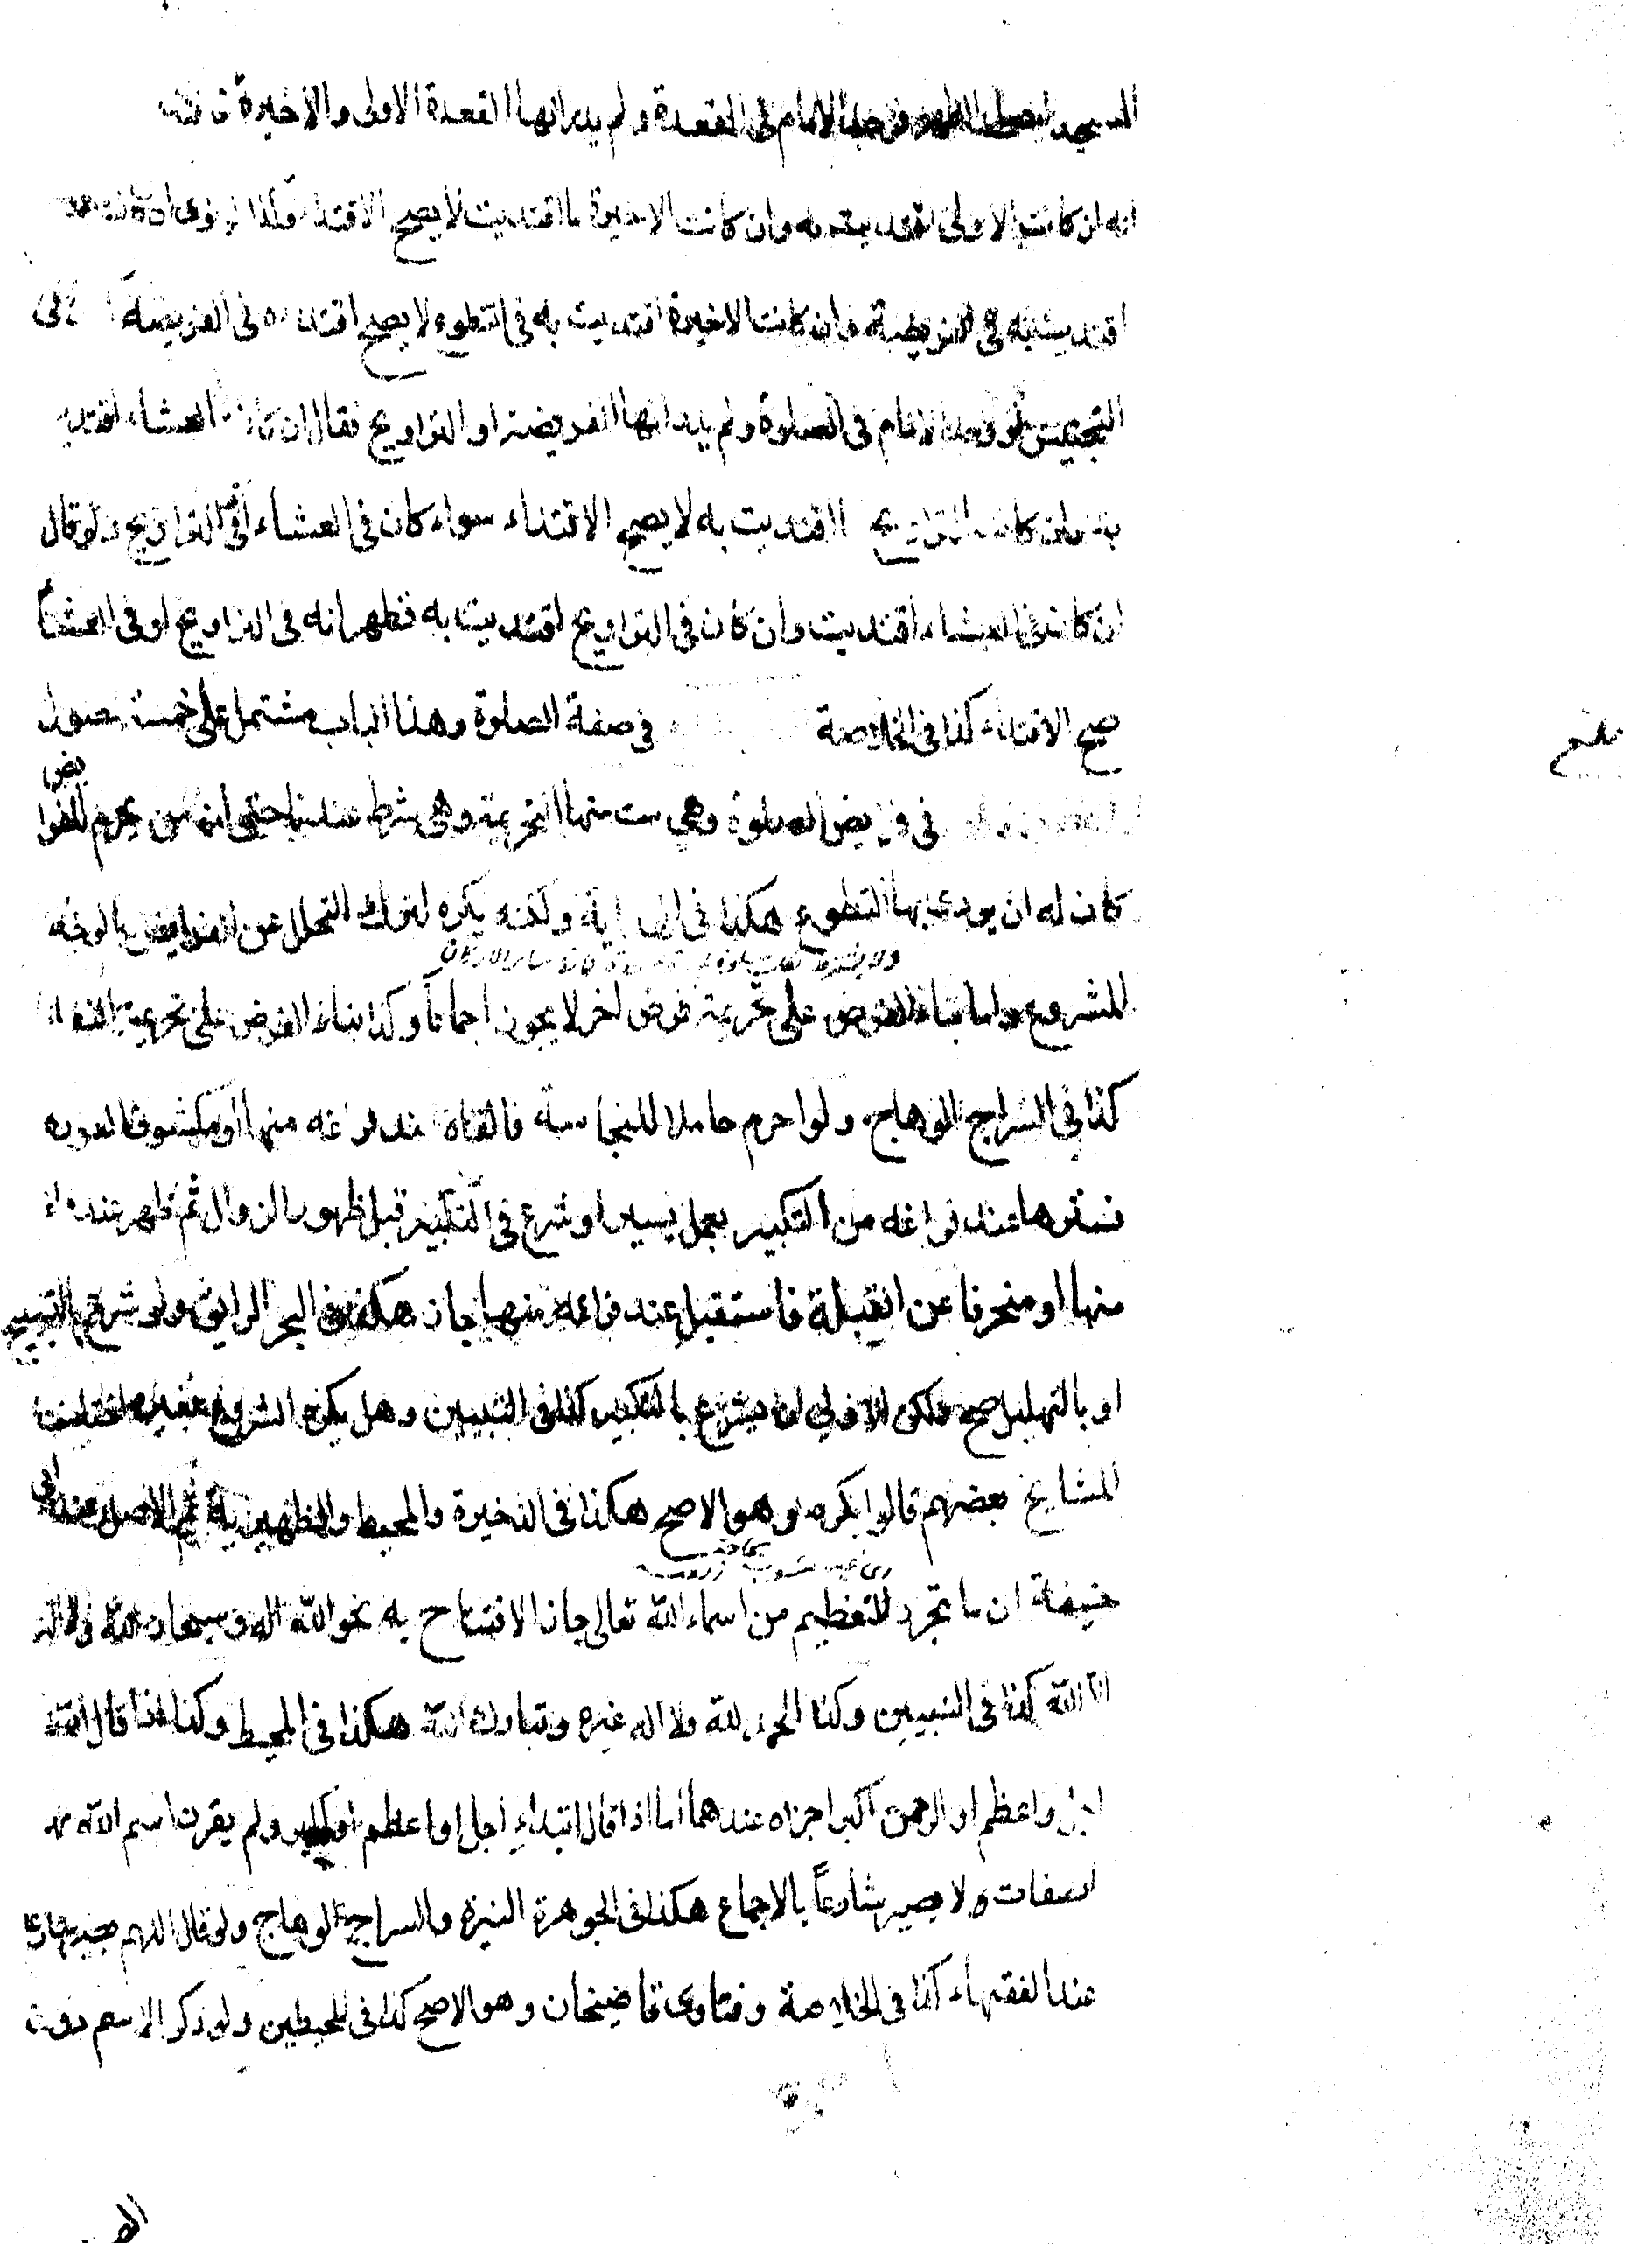 المسجد ليصلى الظهر فوجد الامام فى القعدة ولم يدر انها القعدة الاولى والاخيرة
انه ان كانت الاولى اقتديت به وان كانت الاخيرة ما اقتديت لا يصح الاقتداء وكذا لو نوى ان كانت
اقتديت به فى الفريضة وان كانت الاخيرة اقتديت به فى التطوع لا يصح اقتداءه فى الفريضة
التجنيس لو وجد الامام فى الصلوة ولم يدر انها الفريضة او التراويح فقال ان كان العشاء اقتديت
به وان كانت التراويح ما اقتديت به لا يصح الاقتداء سواء كان فى العشاء او فى التراويح ولو قال
ان كان فى العشاء اقتديت وان كان فى التراويح اقتديت به فظهر انه فى التراويح او فى العشاء
صح الاقتداء كذا فى الخلاصة فى صفة الصلوة وهذا الباب مشتمل على خمسة فصول
فى فرايض الصلوة وهى ست منها التحريمة وهى شرط عندنا حتى ان من يحرم للفرايض
كان له ان يودى بها التطوع هكذا فى الهداية ولكنه يكره لترك التحلل عن الفرايض بالوجه
المشروع واما بناء الفرض على تحريمة فرض اخر لا يجوز اجماعاً وكذا بناء الفرض على تحريمة النفل
كذا فى السراج الوهاج ولو احرم حاملا للنجاسة فالقاها عند فراغه منها او مكشوف العورة
فسترها عند فراغه من التكبير بعمل يسير او شرع فى التكبير قبل ظهور الزوال ثم ظهر عند
منها او منحرفا عن القبلة فاستقبل عند فراغه منها جاز هكذا فى البحر الرايق ولو شرع بالتسبيح
او بالتهليل صح ولكن الاولى ان يشرع بالتكبير كذا فى التبيين وهل يكره الشروع بغيره اختلف
المشايخ بعضهم قالوا يكره وهو الاصح هكذا فى الذخيرة والمحيط والظهيرية ثم الاصل عند ابى
حنيفة ان ما تجرد للتعظيم من اسماء الله تعالى جاز الافتتاح به نحو الله اله وسبحان الله ولا اله
الا الله كذا فى التبيين وكذا الحمد لله ولا اله غيره وتبارك الله هكذا فى المحيط وكذا اذا قال الله
اجل واعظم او الرحمن اكبر اجزاه عندهما اما اذا قال ابتداء اجل او اعظم او اكبر ولم يقرن اسم الله
الصفات ولا يصير شارعاً بالاجماع هكذا فى الجوهرة النيرة والسراج الوهاج ولو قال اللهم يصير شارعا
عند الفقهاء كذا فى الخلاصة وفتاوى قاضيخان وهو الاصح كذا فى المحيطين ولو ذكر الاسم دون